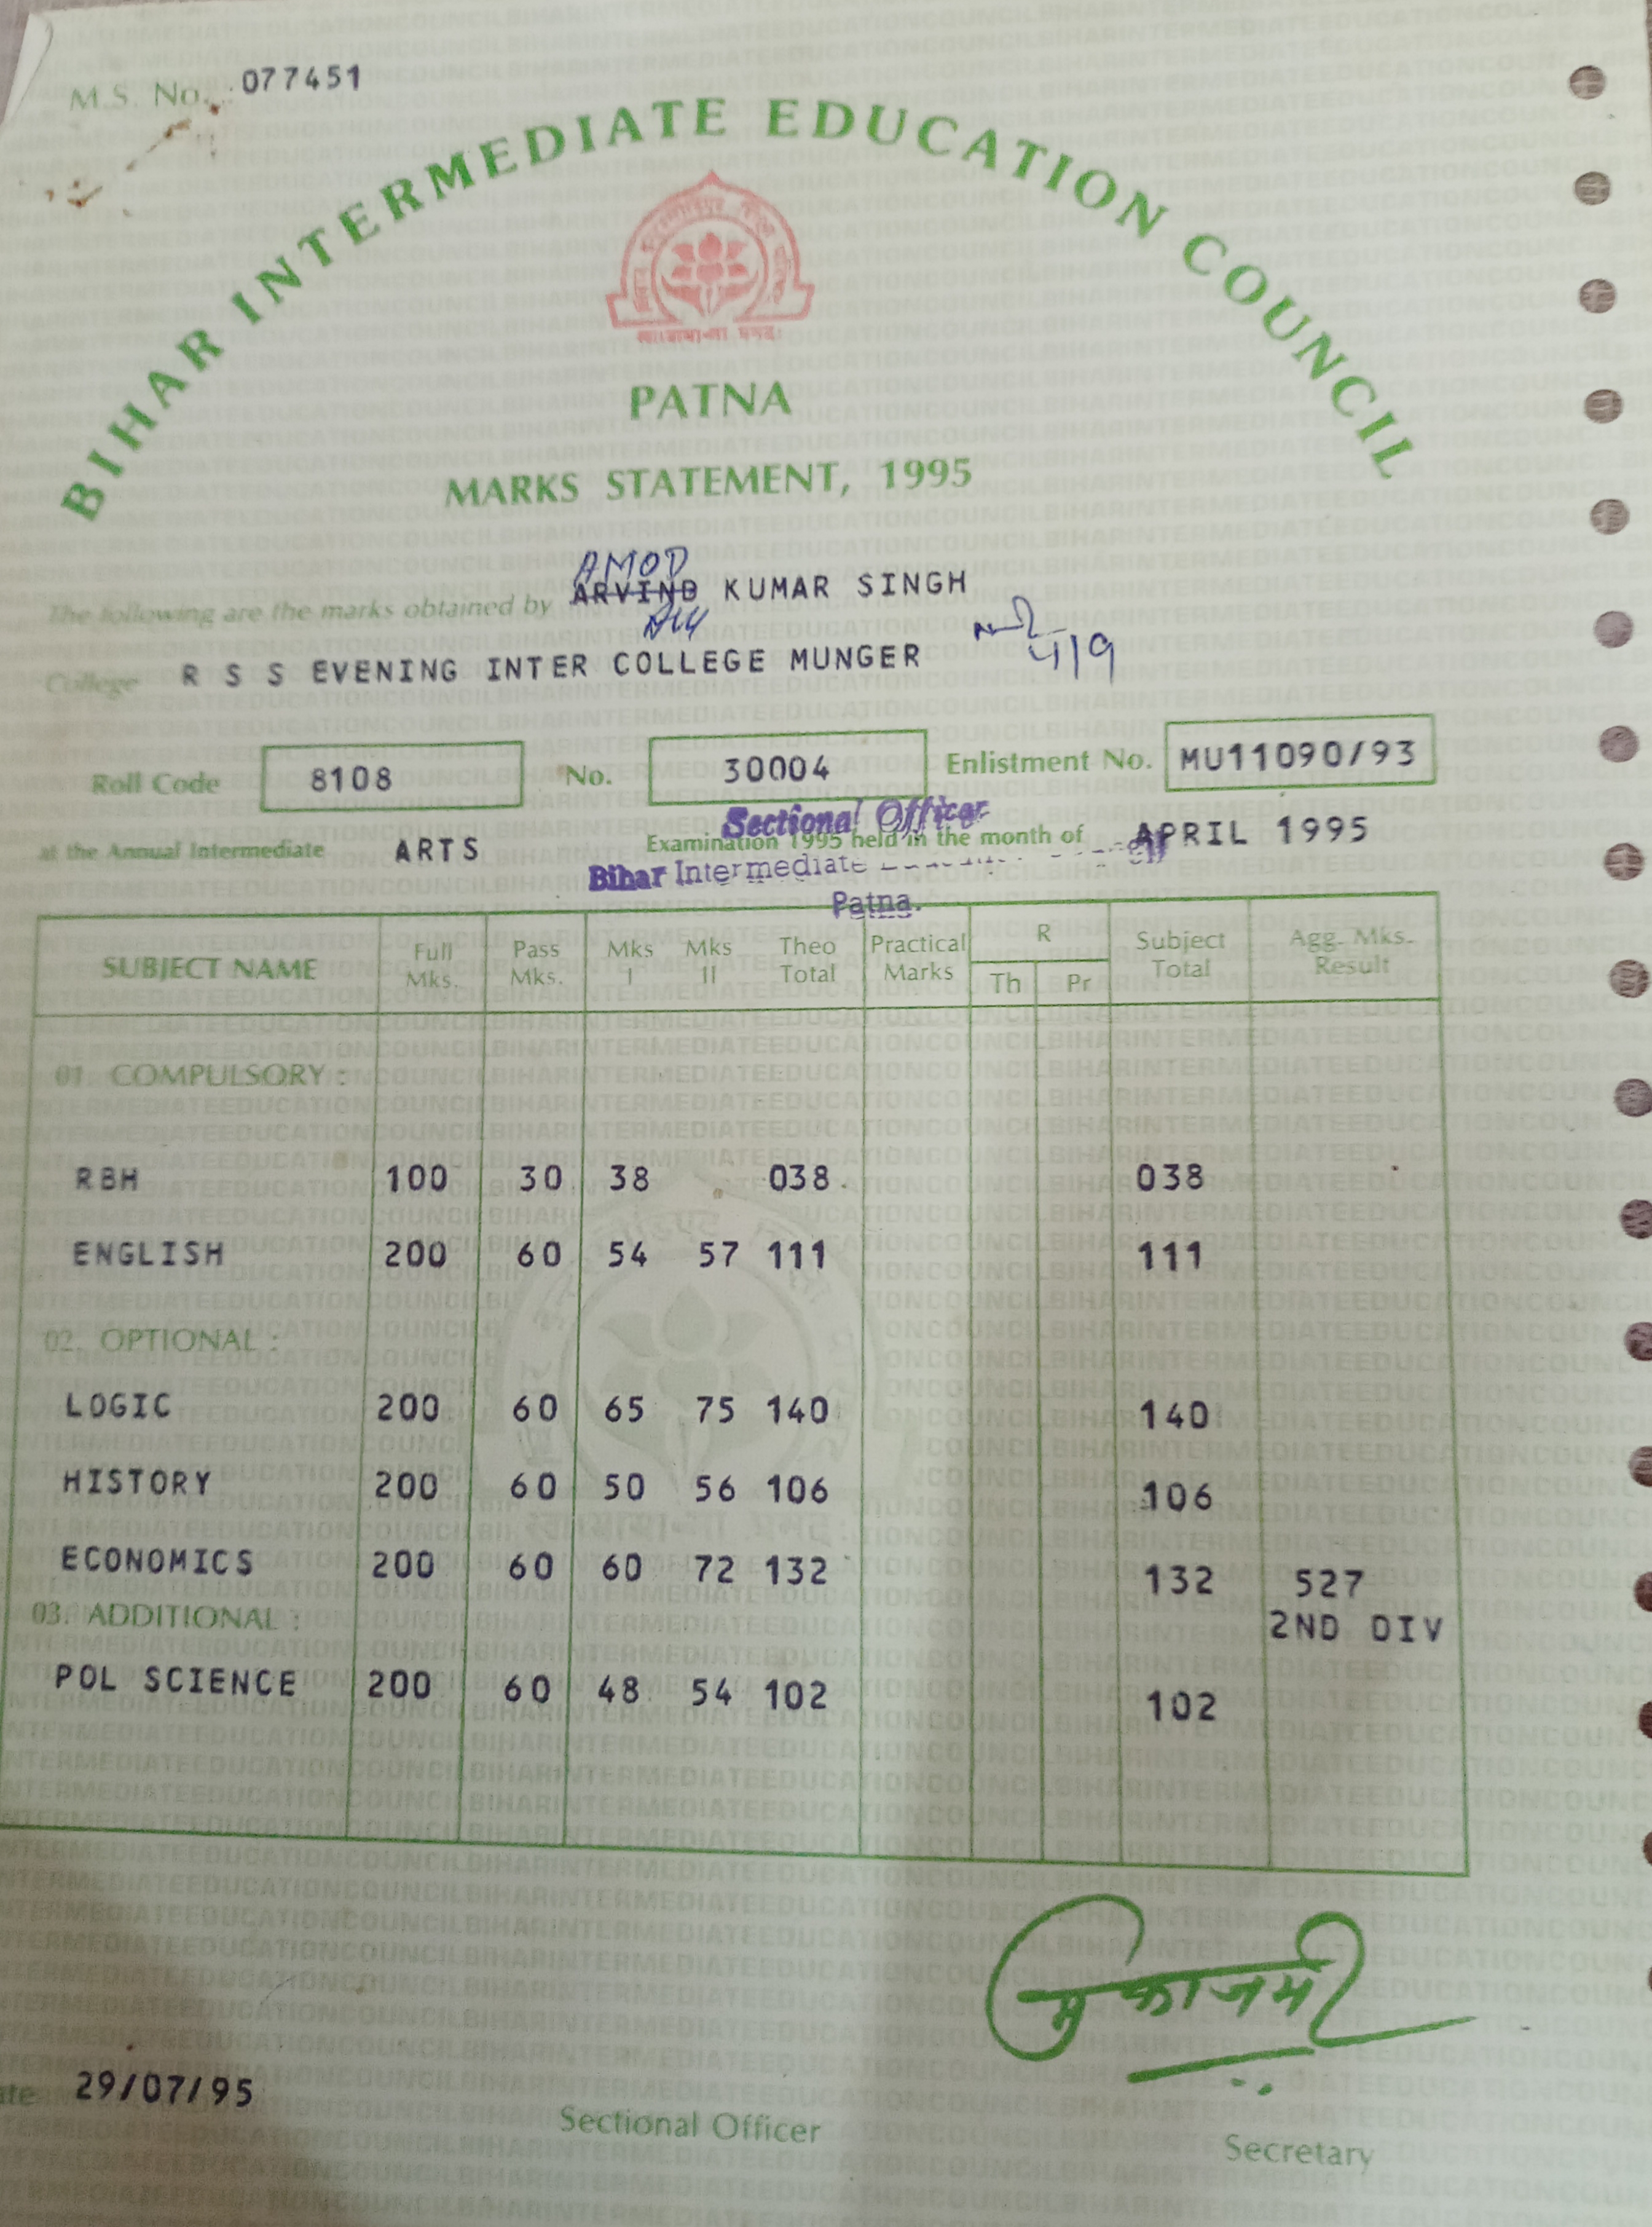 M.S. No. 077451
BIHAR INTERMEDIATE EDUCATION COUNCIL
PATNA
MARKS STATEMENT, 1995
AMOD
The following are the marks obtained by ARVIND KUMAR SINGH
4/9
College R S S EVENING INTER COLLEGE MUNGER
Roll Code 8108 No. 30004 Enlistment No. MU11090/93
Sectional Officer
at the Annual Intermediate ARTS Examination 1995 held in the month of APRIL 1995
Bihar Intermediate
Patna.
SUBJECT NAME Full Mks. Pass Mks. Mks I Mks II Theo Total Practical Marks R Th Pr Subject Total Agg. Mks. Result
01 COMPULSORY :
RBH 100 30 38 038 038
ENGLISH 200 60 54 57 111 111
02. OPTIONAL :
LOGIC 200 60 65 75 140 140
HISTORY 200 60 50 56 106 106
ECONOMICS 200 60 60 72 132 132 527
03. ADDITIONAL : 2ND DIV
POL SCIENCE 200 60 48 54 102 102
29/07/95
Sectional Officer
Secretary